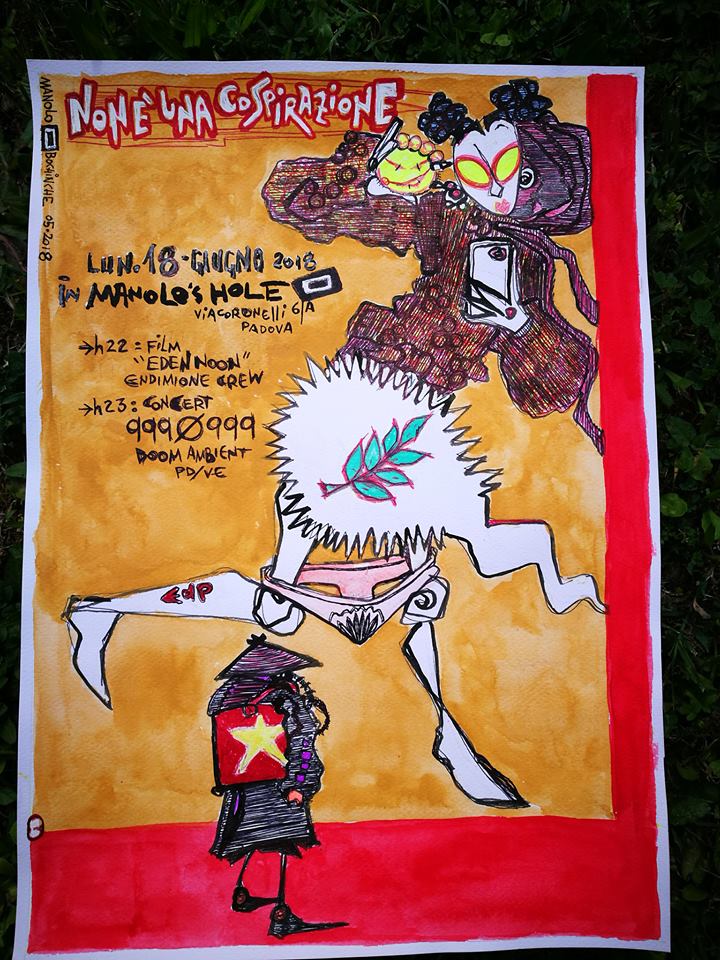 NON È UNA COSPIRAZIONE
MANOLO BOCHINCHE 05-2018
LUN. 18 - GIUGNO 2018
in MANOLO'S HOLE
VIA CORONELLI 6/A
PADOVA
→h22: FILM
"EDEN NOON"
ENDIMIONE CREW
→h23: CONCERT
999Ø999
DOOM AMBIENT
PD/VE